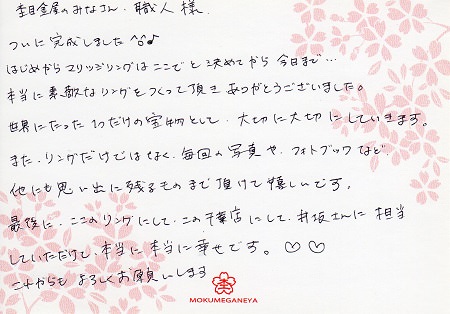 杢目金屋のみなさん、職人様
ついに完成しました^o^♪
はじめからマリッジリングはここでと決めてから今日まで…
本当に素敵なリングをつくって頂きありがとうございました。
世界にたった1つだけの宝物として、大切に大切にしていきます。
また、リングだけではなく、毎回の写真や、フォトブックなど、
他にも思い出に残るものまで頂けて嬉しいです。
最後に、ここのリングにして、この千葉店にして、井坂さんに担当
していただけて、本当に本当に幸せです。♡♡
これからもよろしくお願いします
MOKUMEGANEYA